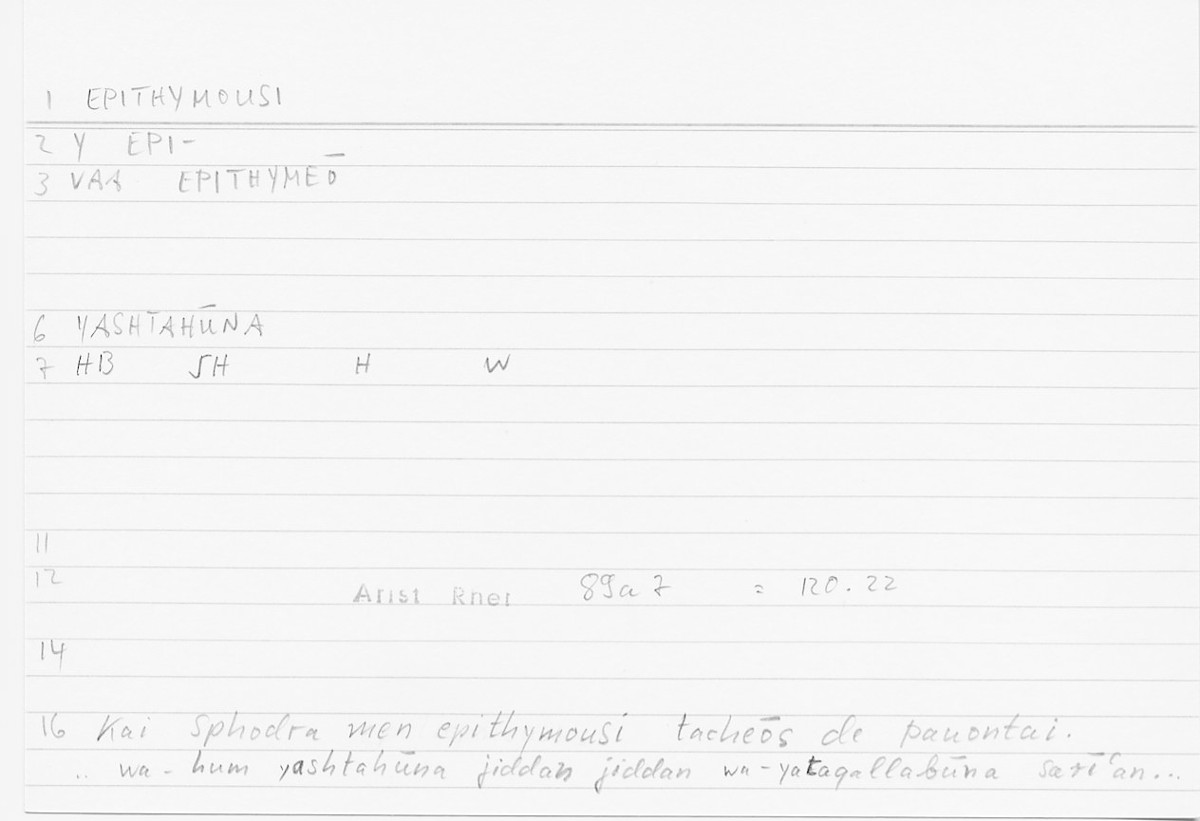 1 EPITHYMOUSI
2 Y EPI-
3 VAA EPITHYMEŌ
6 YASHTAHŪNA
7 HB SH H W
11
12 Arist Rhet 89a7 = 120.22
14
16 Kai sphodra men epithymousi tacheōs de pauontai.
.. wa-hum yashtahūna jiddan jiddan wa-yataqallabūna sarī‘an...